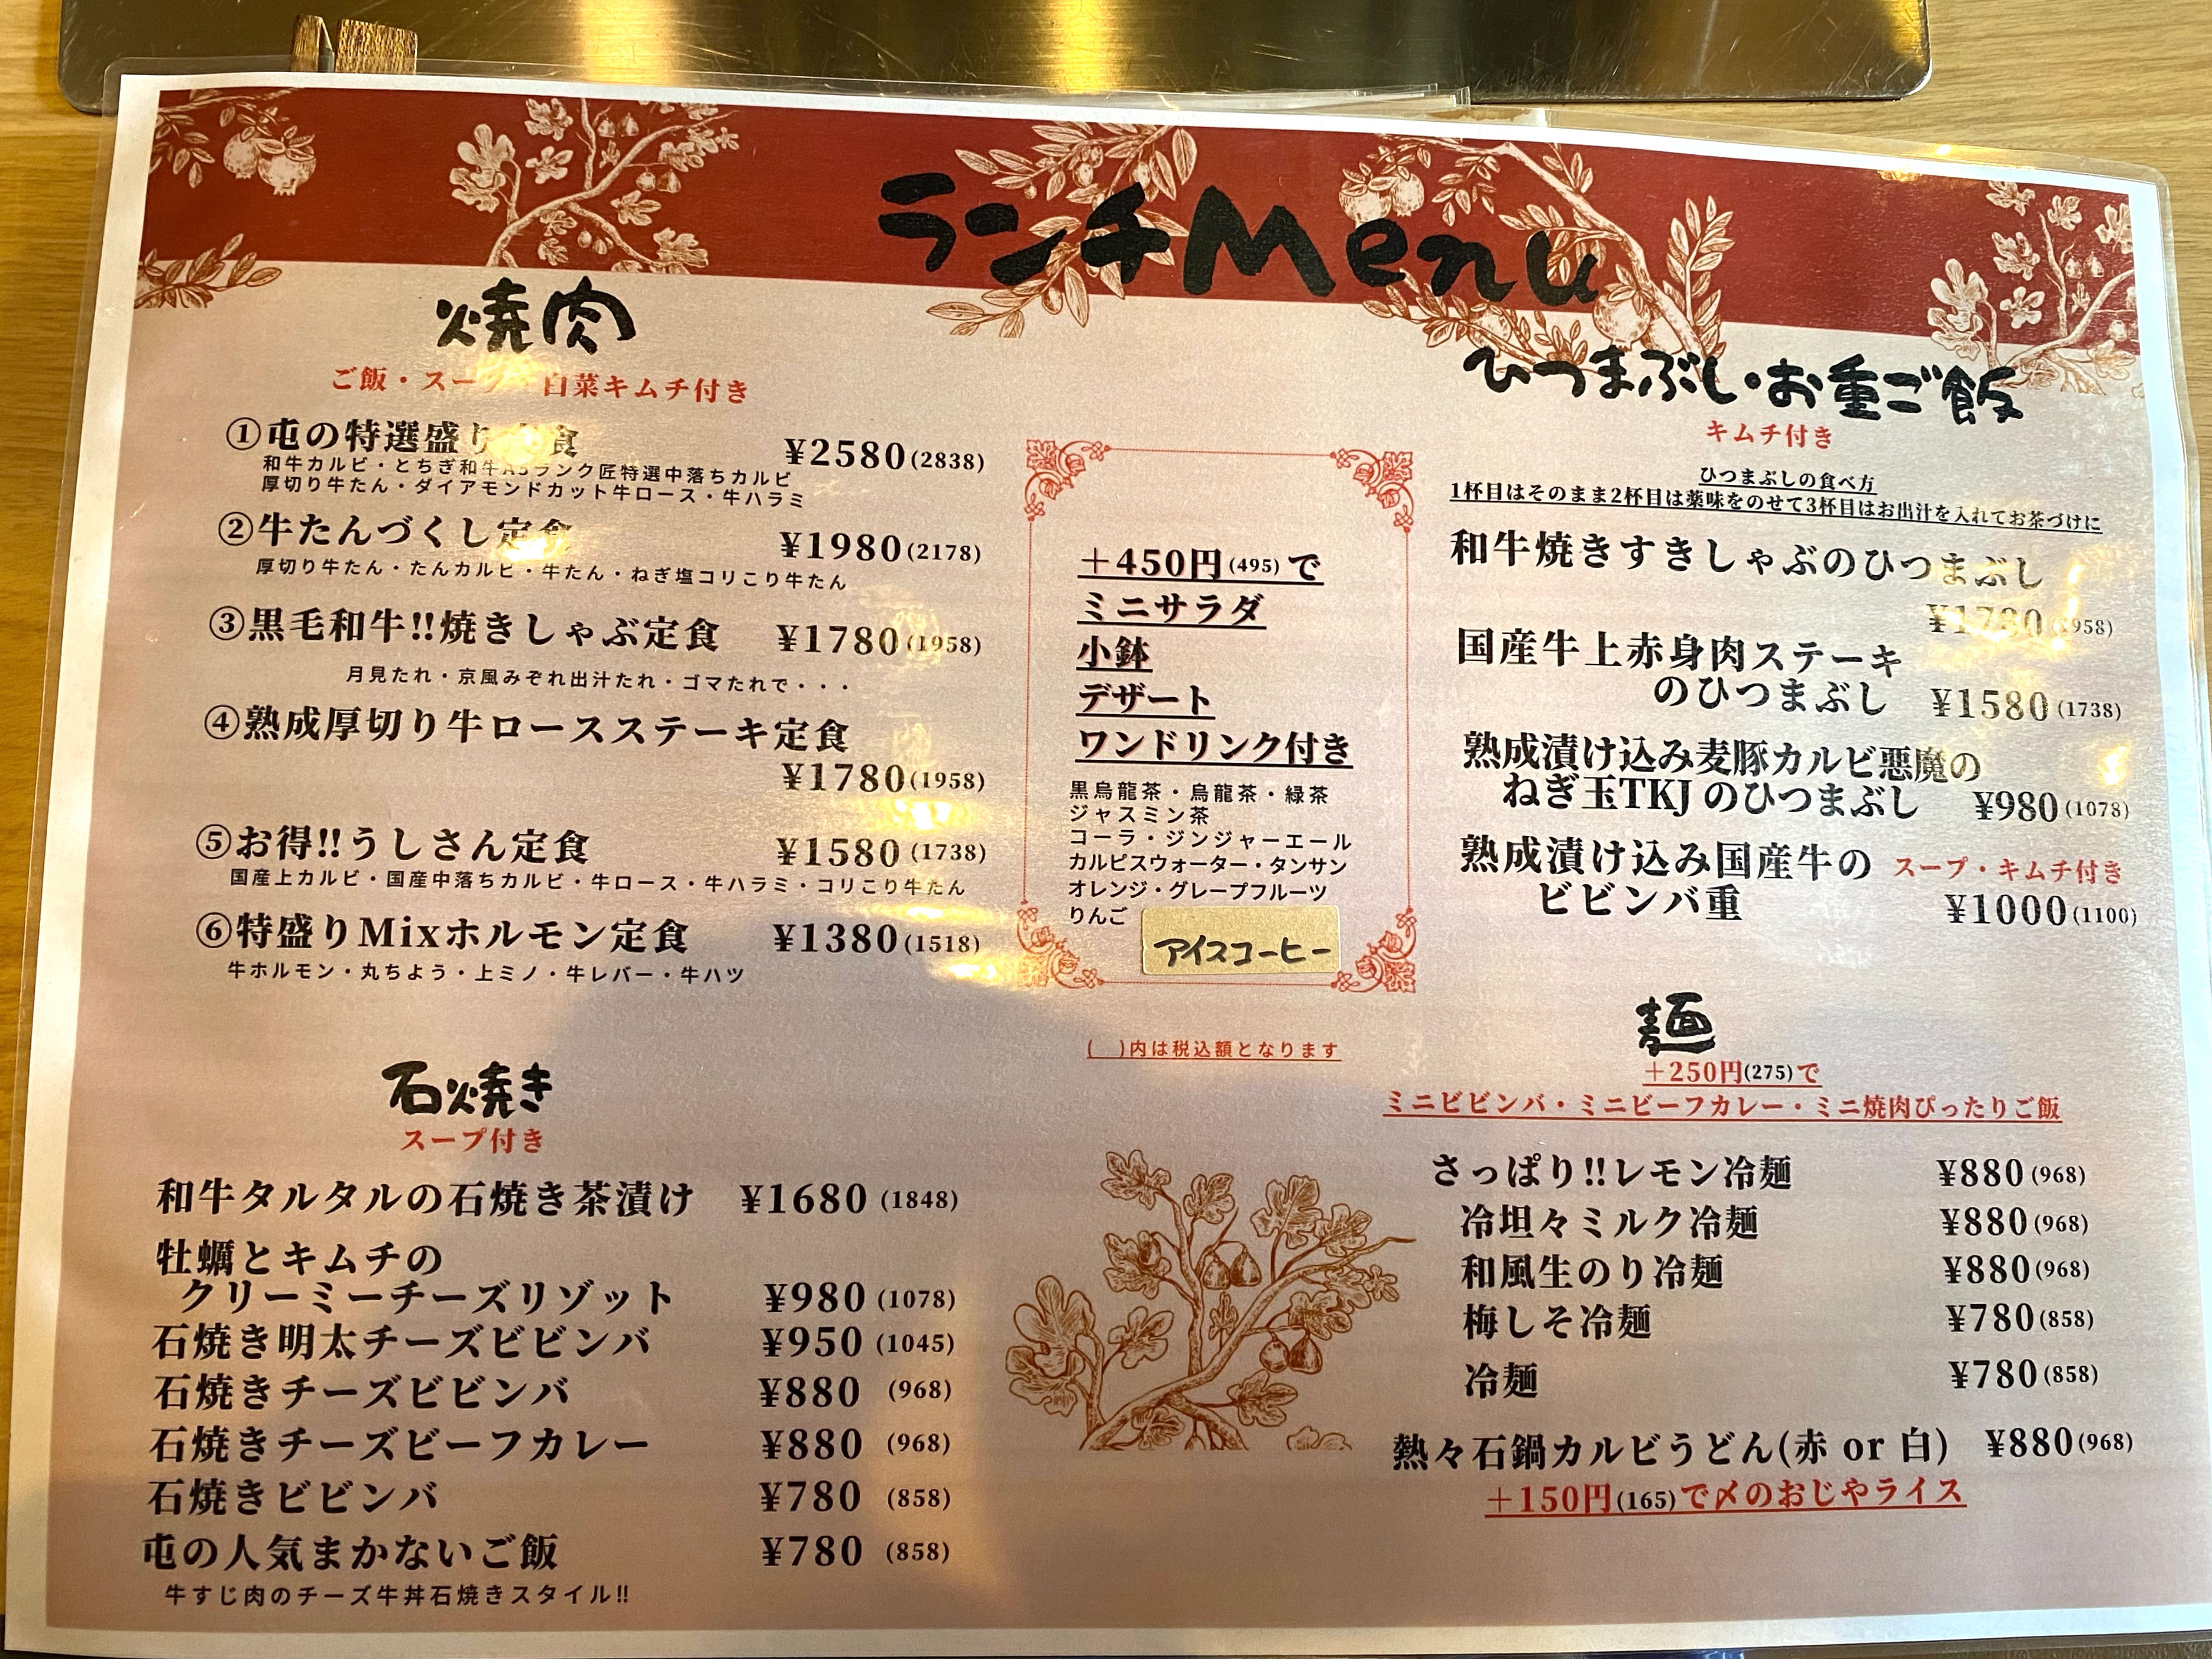 ランチMenu
焼肉
ご飯・スープ 白菜キムチ付き
①屯の特選盛り 食 ¥2580(2838)
和牛カルビ・とちぎ和牛A5ランク匠特選中落ちカルビ
厚切り牛たん・ダイアモンドカット牛ロース・牛ハラミ
②牛たんづくし定食 ¥1980(2178)
厚切り牛たん・たんカルビ・牛たん・ねぎ塩コリこり牛たん
③黒毛和牛!!焼きしゃぶ定食 ¥1780(1958)
月見たれ・京風みぞれ出汁たれ・ゴマたれで・・・
④熟成厚切り牛ロースステーキ定食
¥1780(1958)
⑤お得!!うしさん定食 ¥1580(1738)
国産上カルビ・国産中落ちカルビ・牛ロース・牛ハラミ・コリこり牛たん
⑥特盛りMixホルモン定食 ¥1380(1518)
牛ホルモン・丸ちよう・上ミノ・牛レバー・牛ハツ
石焼き
スープ付き
和牛タルタルの石焼き茶漬け ¥1680(1848)
牡蠣とキムチの
クリーミーチーズリゾット ¥980(1078)
石焼き明太チーズビビンバ ¥950(1045)
石焼きチーズビビンバ ¥880(968)
石焼きチーズビーフカレー ¥880(968)
石焼きビビンバ ¥780(858)
屯の人気まかないご飯 ¥780(858)
牛すじ肉のチーズ牛丼石焼きスタイル!!
＋450円(495)で
ミニサラダ
小鉢
デザート
ワンドリンク付き
黒烏龍茶・烏龍茶・緑茶
ジャスミン茶
コーラ・ジンジャーエール
カルピスウォーター・タンサン
オレンジ・グレープフルーツ
りんご
アイスコーヒー
(　)内は税込額となります
ひつまぶし・お重ご飯
キムチ付き
ひつまぶしの食べ方
1杯目はそのまま2杯目は薬味をのせて3杯目はお出汁を入れてお茶づけに
和牛焼きすきしゃぶのひつまぶし
¥1780(1958)
国産牛上赤身肉ステーキ
のひつまぶし ¥1580(1738)
熟成漬け込み麦豚カルビ悪魔の
ねぎ玉TKJのひつまぶし ¥980(1078)
熟成漬け込み国産牛の スープ・キムチ付き
ビビンバ重 ¥1000(1100)
麺
＋250円(275)で
ミニビビンバ・ミニビーフカレー・ミニ焼肉ぴったりご飯
さっぱり!!レモン冷麺 ¥880(968)
冷坦々ミルク冷麺 ¥880(968)
和風生のり冷麺 ¥880(968)
梅しそ冷麺 ¥780(858)
冷麺 ¥780(858)
熱々石鍋カルビうどん(赤 or 白) ¥880(968)
＋150円(165)で〆のおじやライス